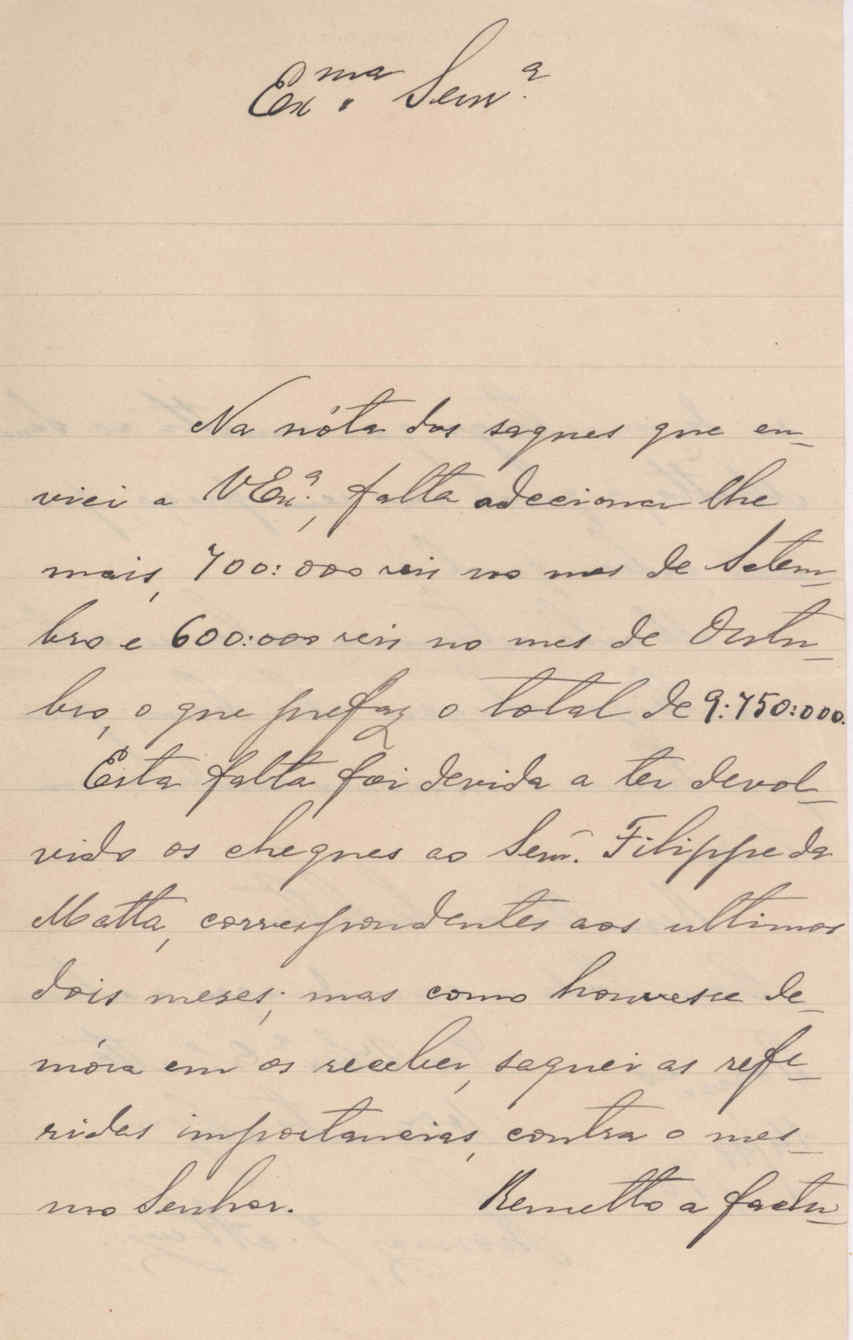 Ex.ma Senr.a
Na nóta dos saques que en_
viei a VEx.a, falta adecionar lhe
mais, 700:000 reis no mes de Setem_
bro e 600:000 reis no mes de Outu_
bro, o que prefaz o total de 9:750:000.
Esta falta foi devida a ter devol_
vido os cheques ao Senr. Filippe da
Matta, correspondentes aos ultimos
dois meses; mas como houvesse de_
móra em os receber, saquei as refe_
ridas importancias, contra o mes_
mo Senhor. Remetto a factu_